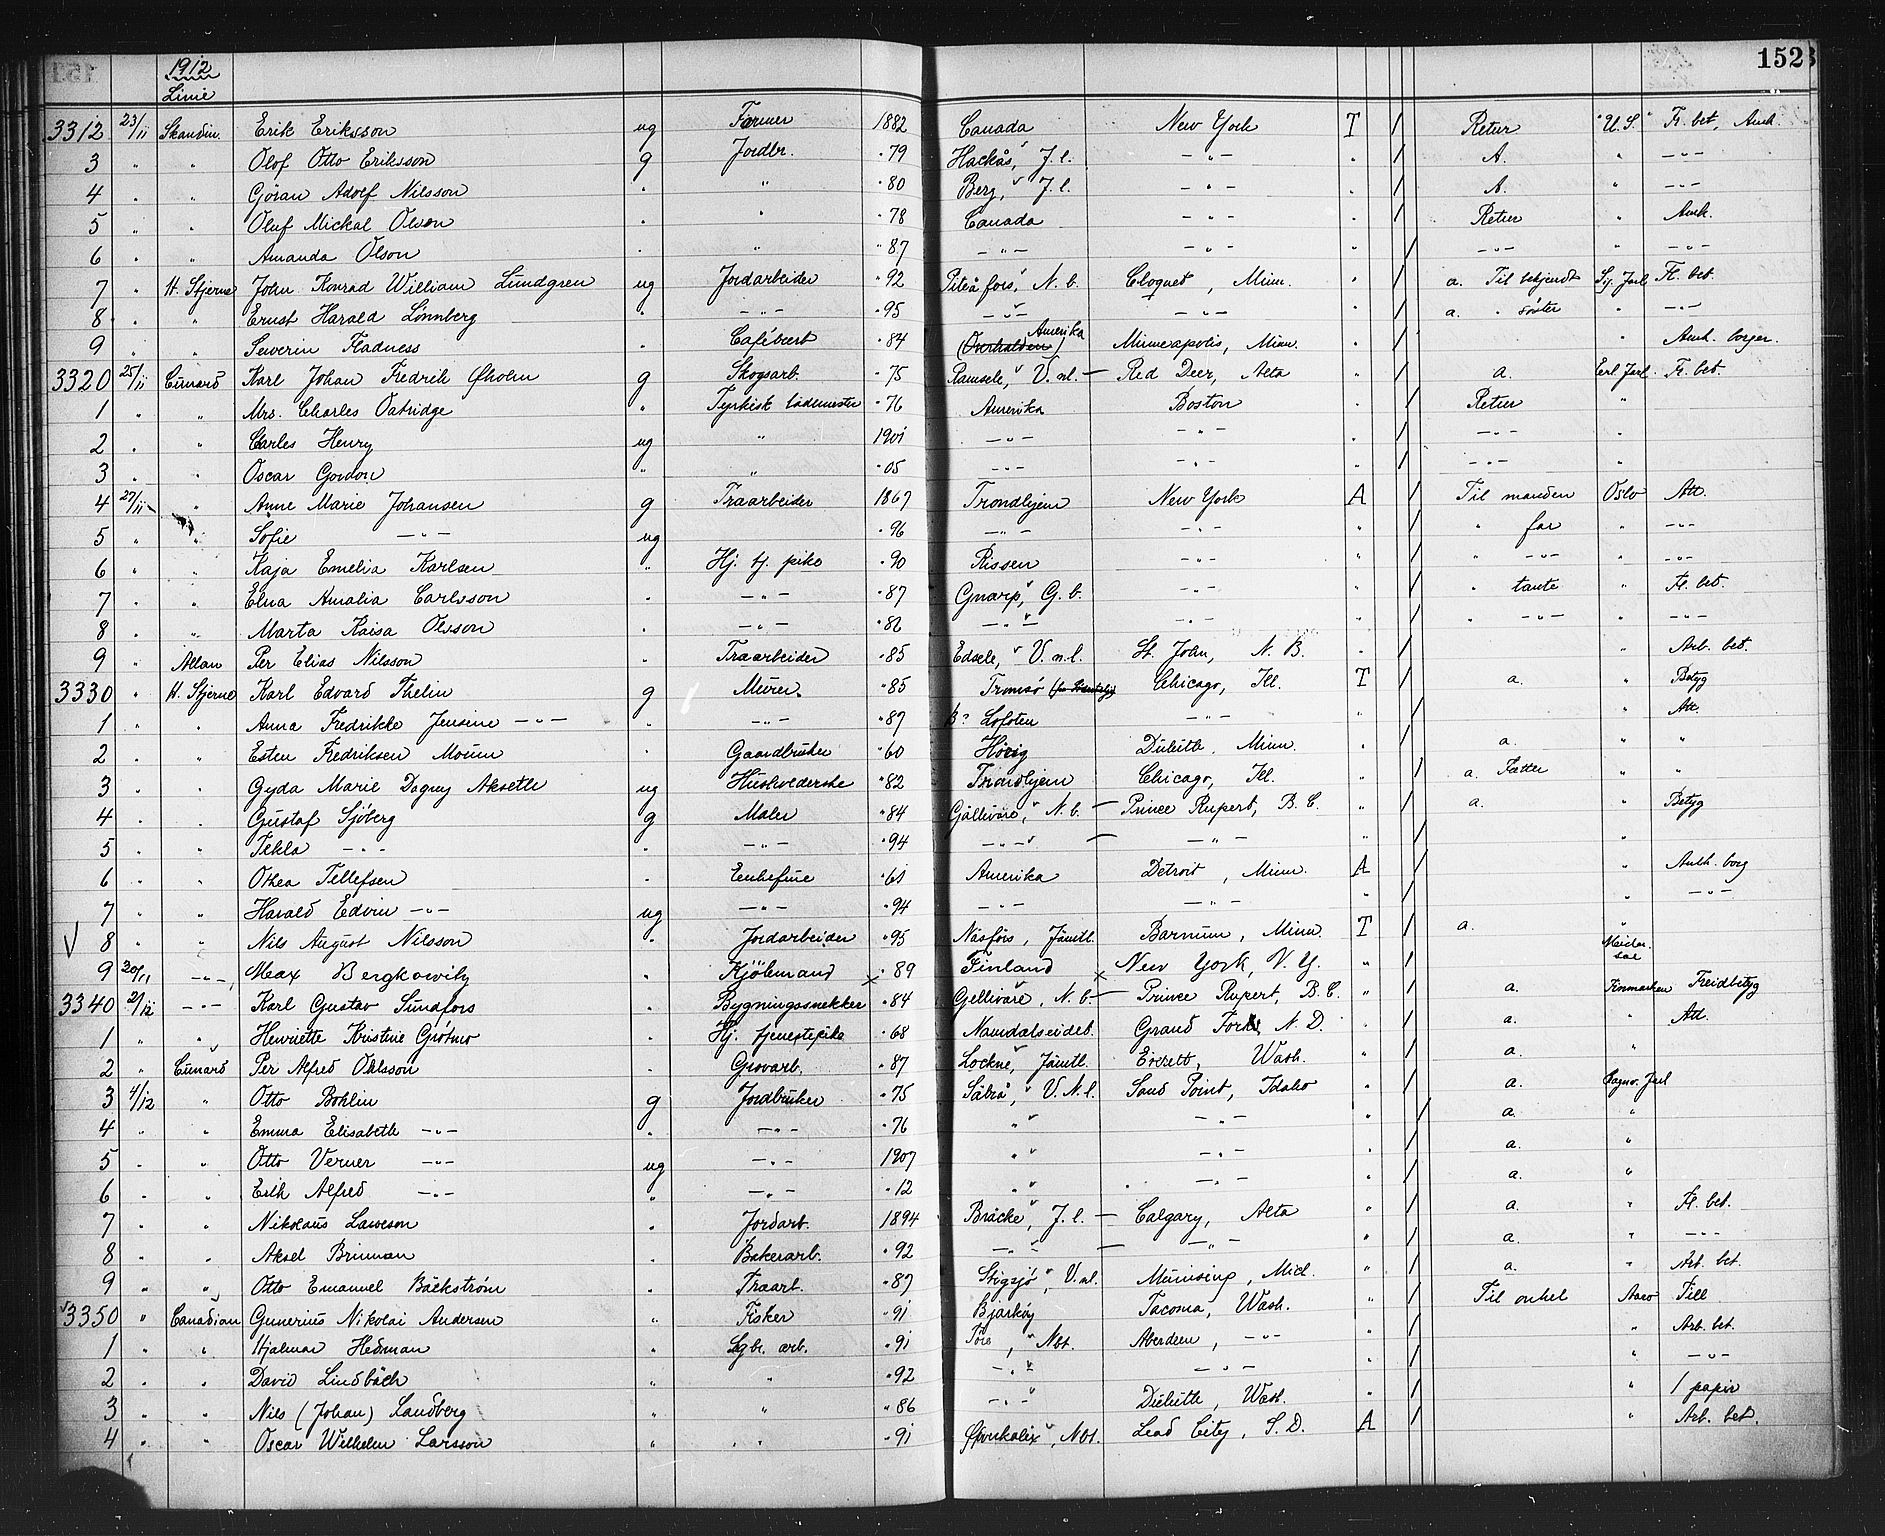 1912 152
Linie
3312 23/11 Skandin. Erik Eriksson ug Farmer 1882 Canada New York T / Retur "U.S." Fr. bet, Amk.
3 " " Olof Otto Eriksson g Jordbr. " 79 Hackås, J. l. — " — " / A. " — " —
4 " " Göran Adolf Nilsson " " " 80 Berg, J. l. — " — " / A. " — " —
5 " " Oluf Mickal Olson " " " 78 Canada — " — " / Retur " Amk.
6 " " Amanda Olson " " " 87 — " — — " — " / — " — " — " —
7 " H. Stjerne John Konrad William Lundgren ug Jordarbeider " 92 Piteåfors, N. b. Cloquet, Minn. " / a. Til bekjendt Sig. Jarl Fl. bet.
8 " " Ernst Harald Lönnberg " — " — " 95 — " — — " — " / a. " søster " — " —
9 " " Severin Fladness " Cafévert " 84 (Overhalden) Amerika Minneapolis, Minn. " / " Amk. borger.
3320 25/11 Cunard Karl Johan Fredrik Øholm g Skogsarb. " 75 Ramsele, V. nl. — Red Deer, Alta " / a. Erl. Jarl Fr. bet.
1 " " Mrs. Charles Oatridge " Tyrkisk bademester " 76 Amerika Boston " / Retur "
2 " " Carles Henry ug " 1901 — " — — " — " / — " — "
3 " " Oscar Gordon " " " 05 — " — — " — " / — " — "
4 27/11 " Anne Marie Johansen g Traarbeider 1867 Trondhjem New York A / Til manden Oslo Att.
5 " " Sofie — " — ug " 96 — " — — " — " / " far " — " —
6 " " Kaja Emelia Karlsen " Hj. tj. pike " 90 Rissen — " — " / " — " — " — " —
7 " " Elna Amalia Carlsson " — " — " 87 Gnarp, G. b. — " — " / " tante " Fl. bet.
8 " " Marta Kaisa Olsson " — " — " 82 — " — — " — " / " — " — " — " —
9 " Allan Per Elias Nilsson " Traarbeider " 85 Edsele, V. n. l. St. John, N. B. " / " Arb. bet.
3330 " H. Stjerne Karl Edvard Thelin g Murer " 85 Tromsø Chicago, Ill. T / a. " Betyg
1 " " Anna Fredrikke Jensine — " — " — " — " 87 Lofoten — " — " / " Att.
2 " " Esten Fredriksen Moum " Gaardbruker " 60 Duluth, Minn. " / a. " "
3 " " Gyda Marie Dagny Aksetle ug " 82 Trondhjem Chicago, Ill. " / a. Fætter " "
4 " " Gustaf Sjöberg g Maler " 84 Gällivare, N. b. — Prince Rupert, B. C. " / a. " Betyg
5 " " Tekla — " — " — " — " 94 — " — — — " — " / "
6 " " Othea Tellefsen " Enkefrue " 61 Amerika Detroit, Minn. A / " Amk. borg
7 " " Harald Edvin — " — ug — " — " 94 — " — — " — " / " — " —
8 " " Nils August Nilsson " Jordarbeider " 95 Näsfors, Jämtl. Barnum, Minn. T / a. "
9 20/11 — " — Max Bergkowitz " Kjöbmand × " 89 Finland × New York, N. Y. " /
3340 2/12 — " — Karl Gustav Sundfors " Bygningssnekker " 84 Gellivare, N. b. — Prince Rupert, B. C. " / a. Finmarken Freidbetyg
1 " " Henriette Kristine Grötmo " Hj. tjenestepike " 68 Namdalseidet Grand Forks, N. D. " / a. " Att.
2 " Cunard Per Alfred Ohlsson " Grovarb. " 87 Lockne, Jämtl. Everett, Wash. " / a. "
3 4/12 " Otto Bohlin g Jordbruker " 75 Säbrå, V. N. l. Sand Point, Idaho " / a. Ragnv. Jarl
4 " " Emma Elisabeth — " — " — " — " 76 " — " — " / a. "
5 " " Otto Verner — " — ug — " — 1907 " — " — / a. "
6 " " Erik Alfred — " — " — " — " 12 " — " — " / a. "
7 " " Nikolaus Lawson " Jordarb. 1894 Bräcke, J. l. — Calgary, Alta " / a. " Fl. bet.
8 " " Aksel Brinman " Bakerarb. " 92 — " — — — " — " / a. " — " —
9 " " Otto Emanuel Bäckström " Traarb. " 87 Stigsjö, V. nl. Munising, Mich. " / a. " Arb. bet.
3350 " Canadian Gunerius Nikolai Andersen " Fisker " 91 Bjarköy Tacoma, Wash. " / Til onkel Aaro Till
1 " " Hjalmar Hedman " Sgbr. arb. " 91 Töre, Nbt. Aberdeen, — " — / " Arb. bet.
2 " " David Lindbäck " " " 92 — " — — " — " / " — " —
3 " " Nils (Johan) Landberg " " " 86 — " — Duluth, Wash. " / " 1 papir
4 " " Oscar Wilhelm Larsson " " " 91 Øfverkalix, Nbt. Lead City, S. D. A / " Arb. bet.